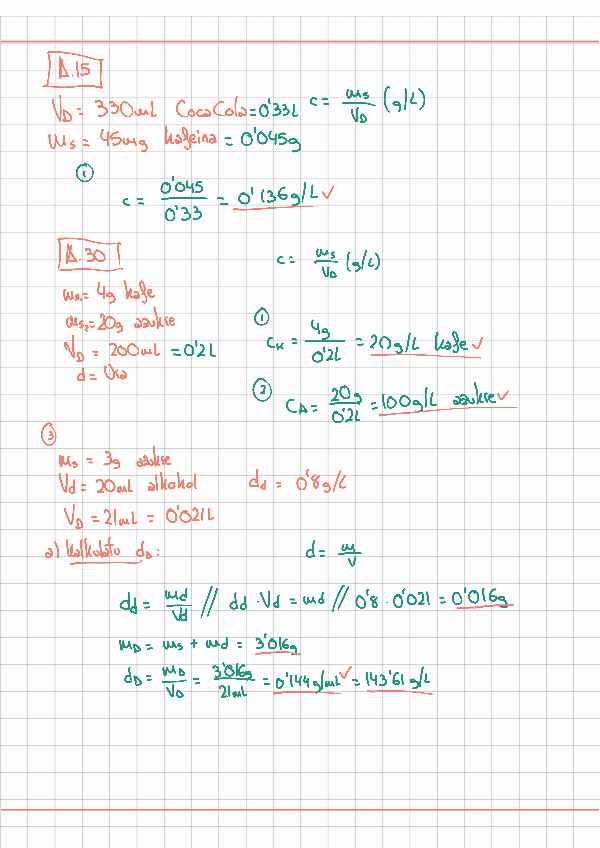 Δ.15
V_D = 330mL CocaCola = 0'33L c = m_s/V_D (g/L)
m_s = 45mg kafeina = 0'045g
①
c = 0'045/0'33 = 0'136g/L ✓
Δ.30
c = m_s/V_D (g/L)
m_s₁ = 4g kafe
m_s₂ = 20g azukre
V_D = 200mL = 0'2L
d = Ura
① C_K = 4g/0'2L = 20g/L kafe ✓
② C_A = 20g/0'2L = 100g/L azukre ✓
③
m_s = 3g azukre
Vd = 20mL alkohol d_d = 0'8g/L
V_D = 21mL = 0'021L
a) Kalkulatu d_D:
d = m/V
d_d = md/Vd // dd · Vd = md // 0'8 · 0'021 = 0'016g
m_D = m_s + md = 3'016g
d_D = m_D/V_D = 3'016g/21mL = 0'144g/mL ✓ = 143'61 g/L